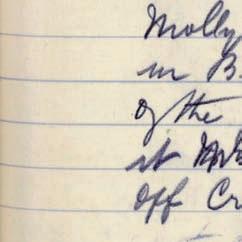 Molly
in B
of the
it
off Cr